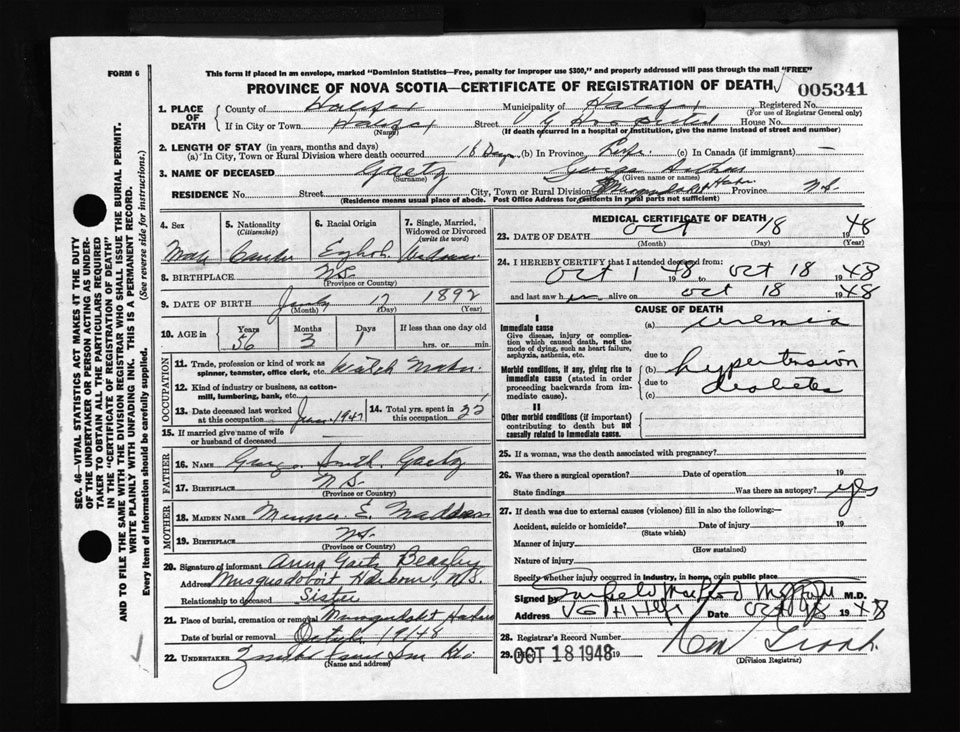 FORM 6
This form if placed in an envelope, marked "Dominion Statistics—Free, penalty for improper use $300," and properly addressed will pass through the mail "FREE"
PROVINCE OF NOVA SCOTIA—CERTIFICATE OF REGISTRATION OF DEATH 005341
1. PLACE OF DEATH
County of Halifax Municipality of Halifax Registered No.
(For use of Registrar General only)
If in City or Town Halifax Street V G Hospital House No.
(Name) (If death occurred in a hospital or institution, give the name instead of street and number)
2. LENGTH OF STAY (in years, months and days)
(a) In City, Town or Rural Division where death occurred 18 Days (b) In Province Life (c) In Canada (if immigrant) —
3. NAME OF DECEASED Gaetz George
(Surname) (Given name or names)
RESIDENCE No. Street City, Town or Rural Division Musquodoboit Harbour Province N.S.
(Residence means usual place of abode. Post Office Address for residents in rural parts not sufficient)
SEC. 46—VITAL STATISTICS ACT MAKES IT THE DUTY
OF THE UNDERTAKER OR PERSON ACTING AS UNDER-
TAKER TO OBTAIN ALL THE PARTICULARS REQUIRED
IN THE "CERTIFICATE OF REGISTRATION OF DEATH"
AND TO FILE THE SAME WITH THE DIVISION REGISTRAR WHO SHALL ISSUE THE BURIAL PERMIT.
WRITE PLAINLY WITH UNFADING INK. THIS IS A PERMANENT RECORD.
Every item of information should be carefully supplied. (See reverse side for instructions.)
4. Sex
Male
5. Nationality
(Citizenship)
6. Racial Origin
English
7. Single, Married, Widowed or Divorced
(write the word)
Widower
8. BIRTHPLACE N.S.
(Province or Country)
9. DATE OF BIRTH 17 1892
(Month) (Day) (Year)
10. AGE in
Years 56
Months 3
Days 1
If less than one day old
hrs. or min.
OCCUPATION
11. Trade, profession or kind of work as spinner, teamster, office clerk, etc. Watch Maker
12. Kind of industry or business, as cotton-mill, lumbering, bank, etc.
13. Date deceased last worked at this occupation 1947
14. Total yrs. spent in this occupation
15. If married give name of wife or husband of deceased
FATHER
16. NAME George Smith Gaetz
17. BIRTHPLACE N.S.
(Province or Country)
MOTHER
18. MAIDEN NAME E.
19. BIRTHPLACE N.S.
(Province or Country)
20. Signature of informant Anna Gaetz
Address Musquodoboit Harbour, N.S.
Relationship to deceased Sister
21. Place of burial, cremation or removal Musquodoboit Harbour
Date of burial or removal
22. UNDERTAKER
(Name and address)
MEDICAL CERTIFICATE OF DEATH
23. DATE OF DEATH Oct 18 1948
(Month) (Day) (Year)
24. I HEREBY CERTIFY that I attended deceased
from Oct 1 48 to Oct 18 1948
and last saw him alive on Oct 18 1948
CAUSE OF DEATH
I
Immediate cause
Give disease, injury or complication which caused death, not the mode of dying, such as heart failure, asphyxia, asthenia, etc.
(a) uremia
due to
Morbid conditions, if any, giving rise to immediate cause (stated in order proceeding backwards from immediate cause).
(b) hypertension
due to diabetes
(c)
II
Other morbid conditions (if important) contributing to death but not causally related to immediate cause.
25. If a woman, was the death associated with pregnancy?
26. Was there a surgical operation? Date of operation 19
State findings Was there an autopsy? yes
27. If death was due to external causes (violence) fill in also the following:—
Accident, suicide or homicide? Date of injury 19
(State which)
Manner of injury
(How sustained)
Nature of injury
Specify whether injury occurred in industry, in home, or in public place
Signed by M.D.
Address Date Oct 18 1948
28. Registrar's Record Number
29. Filed OCT 18 1948 19
(Division Registrar)